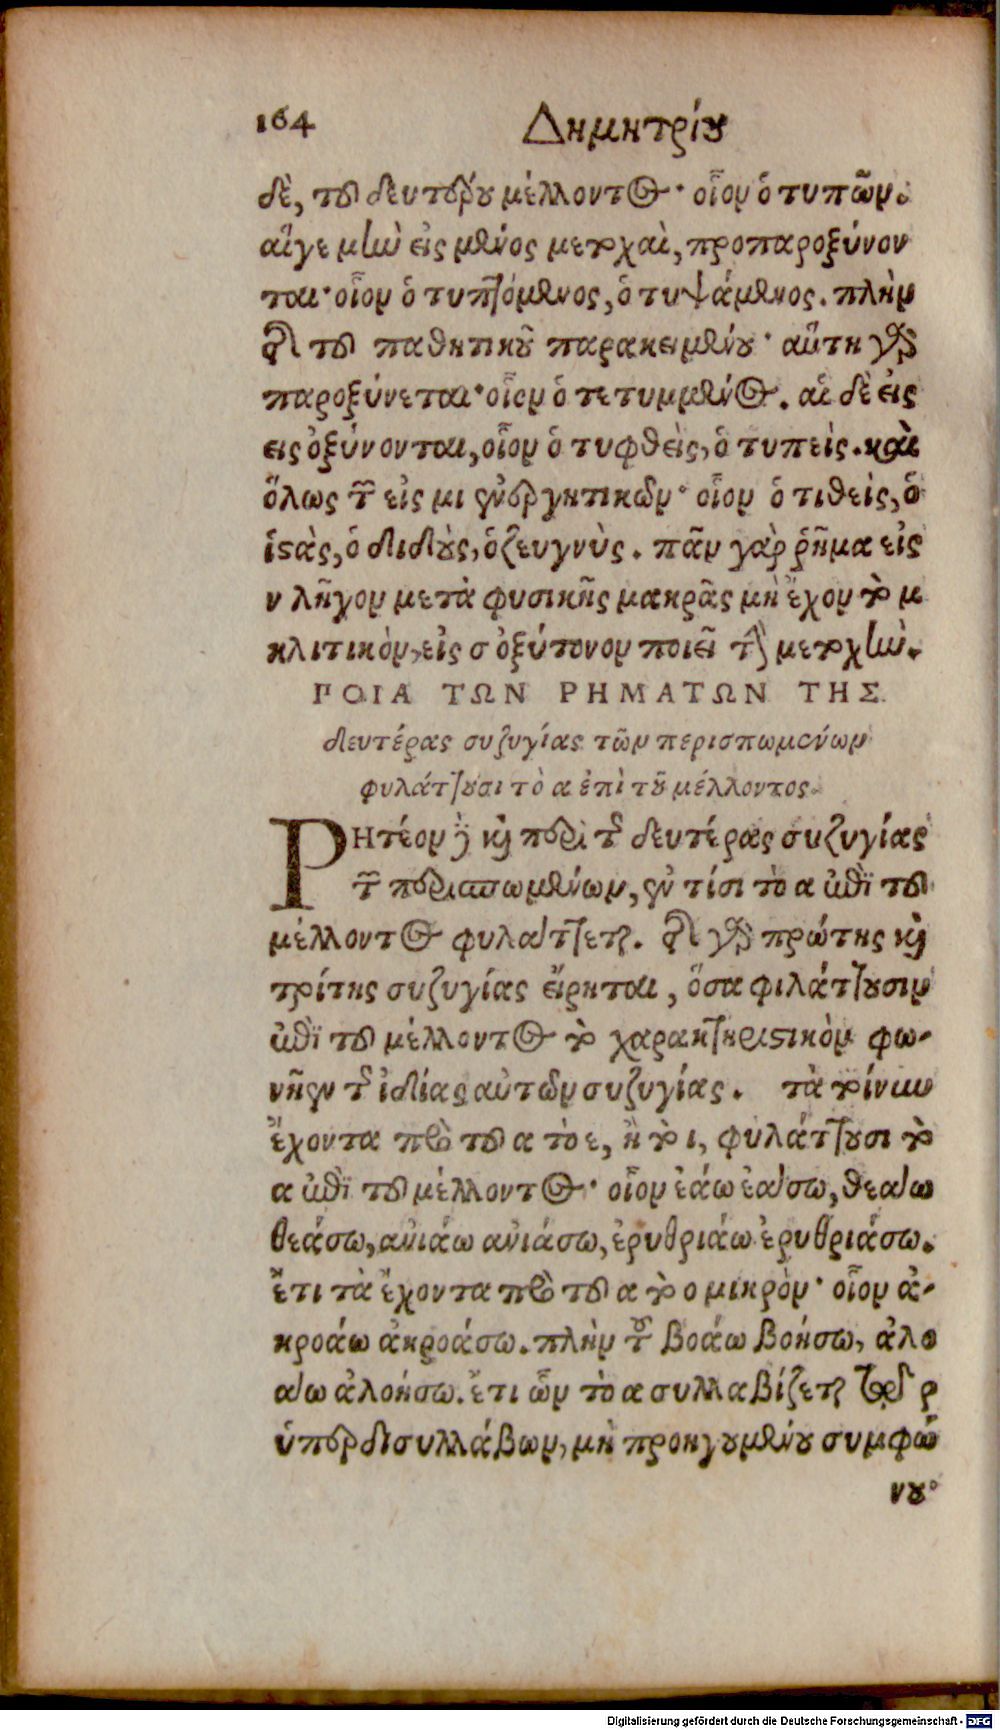 164 Δημητρίου
δὲ, τοῦ δευτέρου μέλλοντος· οἷον ὁ τυπῶν.
αἵγε μὴν εἰς μενος μετοχαὶ, προπαροξύνον
ται· οἷον ὁ τυπτόμενος, ὁ τυψάμενος. πλὴν
τῆς τοῦ παθητικοῦ παρακειμένου· αὕτη γὰρ
παροξύνεται· οἷον ὁ τετυμμένος. αἱ δὲ εἰς
εις ὀξύνονται, οἷον ὁ τυφθεὶς, ὁ τυπείς. καὶ
ὅλως τῶν εἰς μι ἐνεργητικῶν· οἷον ὁ τιθείς, ὁ
ἱστὰς, ὁ διδοὺς, ὁ ζευγνὺς. πᾶν γὰρ ῥῆμα εἰς
ν λῆγον μετὰ φυσικῆς μακρᾶς μὴ ἔχον τὸ μ
κλιτικὸν, εἰς σ ὀξύτονον ποιεῖ τὴν μετοχὴν.
ΠΟΙΑ ΤΩΝ ΡΗΜΑΤΩΝ ΤΗΣ
δευτέρας συζυγίας τῶν περισπωμένων
φυλάττουσι τὸ α ἐπὶ τοῦ μέλλοντος.
ΡΗτέον δὲ καὶ περὶ τῆς δευτέρας συζυγίας
τῶν περισπωμένων, ἐν τίσι τὸ α ἐπὶ τοῦ
μέλλοντος φυλάττεται. τῆς γὰρ πρώτης καὶ
τρίτης συζυγίας εἴρηται, ὅσα φιλάττουσιν
ἐπὶ τοῦ μέλλοντος τὸ χαρακτηριστικὸν φω-
νῆεν τῆς ἰδίας αὐτῶν συζυγίας. τὰ τοίνυν
ἔχοντα πρὸ τοῦ α τὸ ε, ἢ τὸ ι, φυλάττουσι τὸ
α ἐπὶ τοῦ μέλλοντος· οἷον ἐάω ἐάσω, θεάω
θεάσω, ἀνιάω ἀνιάσω, ἐρυθριάω ἐρυθριάσω.
ἔτι τὰ ἔχοντα πρὸ τοῦ α τὸ ο μικρὸν· οἷον ἀ-
κροάω ἀκροάσω. πλὴν τοῦ βοάω βοήσω, ἀλο
άω ἀλοήσω. ἔτι ὧν τὸ α συλλαβίζεται μετὰ τοῦ ρ
ὑπὲρ δισυλλάβων, μὴ προηγουμένου συμφώ
νου·
Digitalisierung gefördert durch die Deutsche Forschungsgemeinschaft - DFG